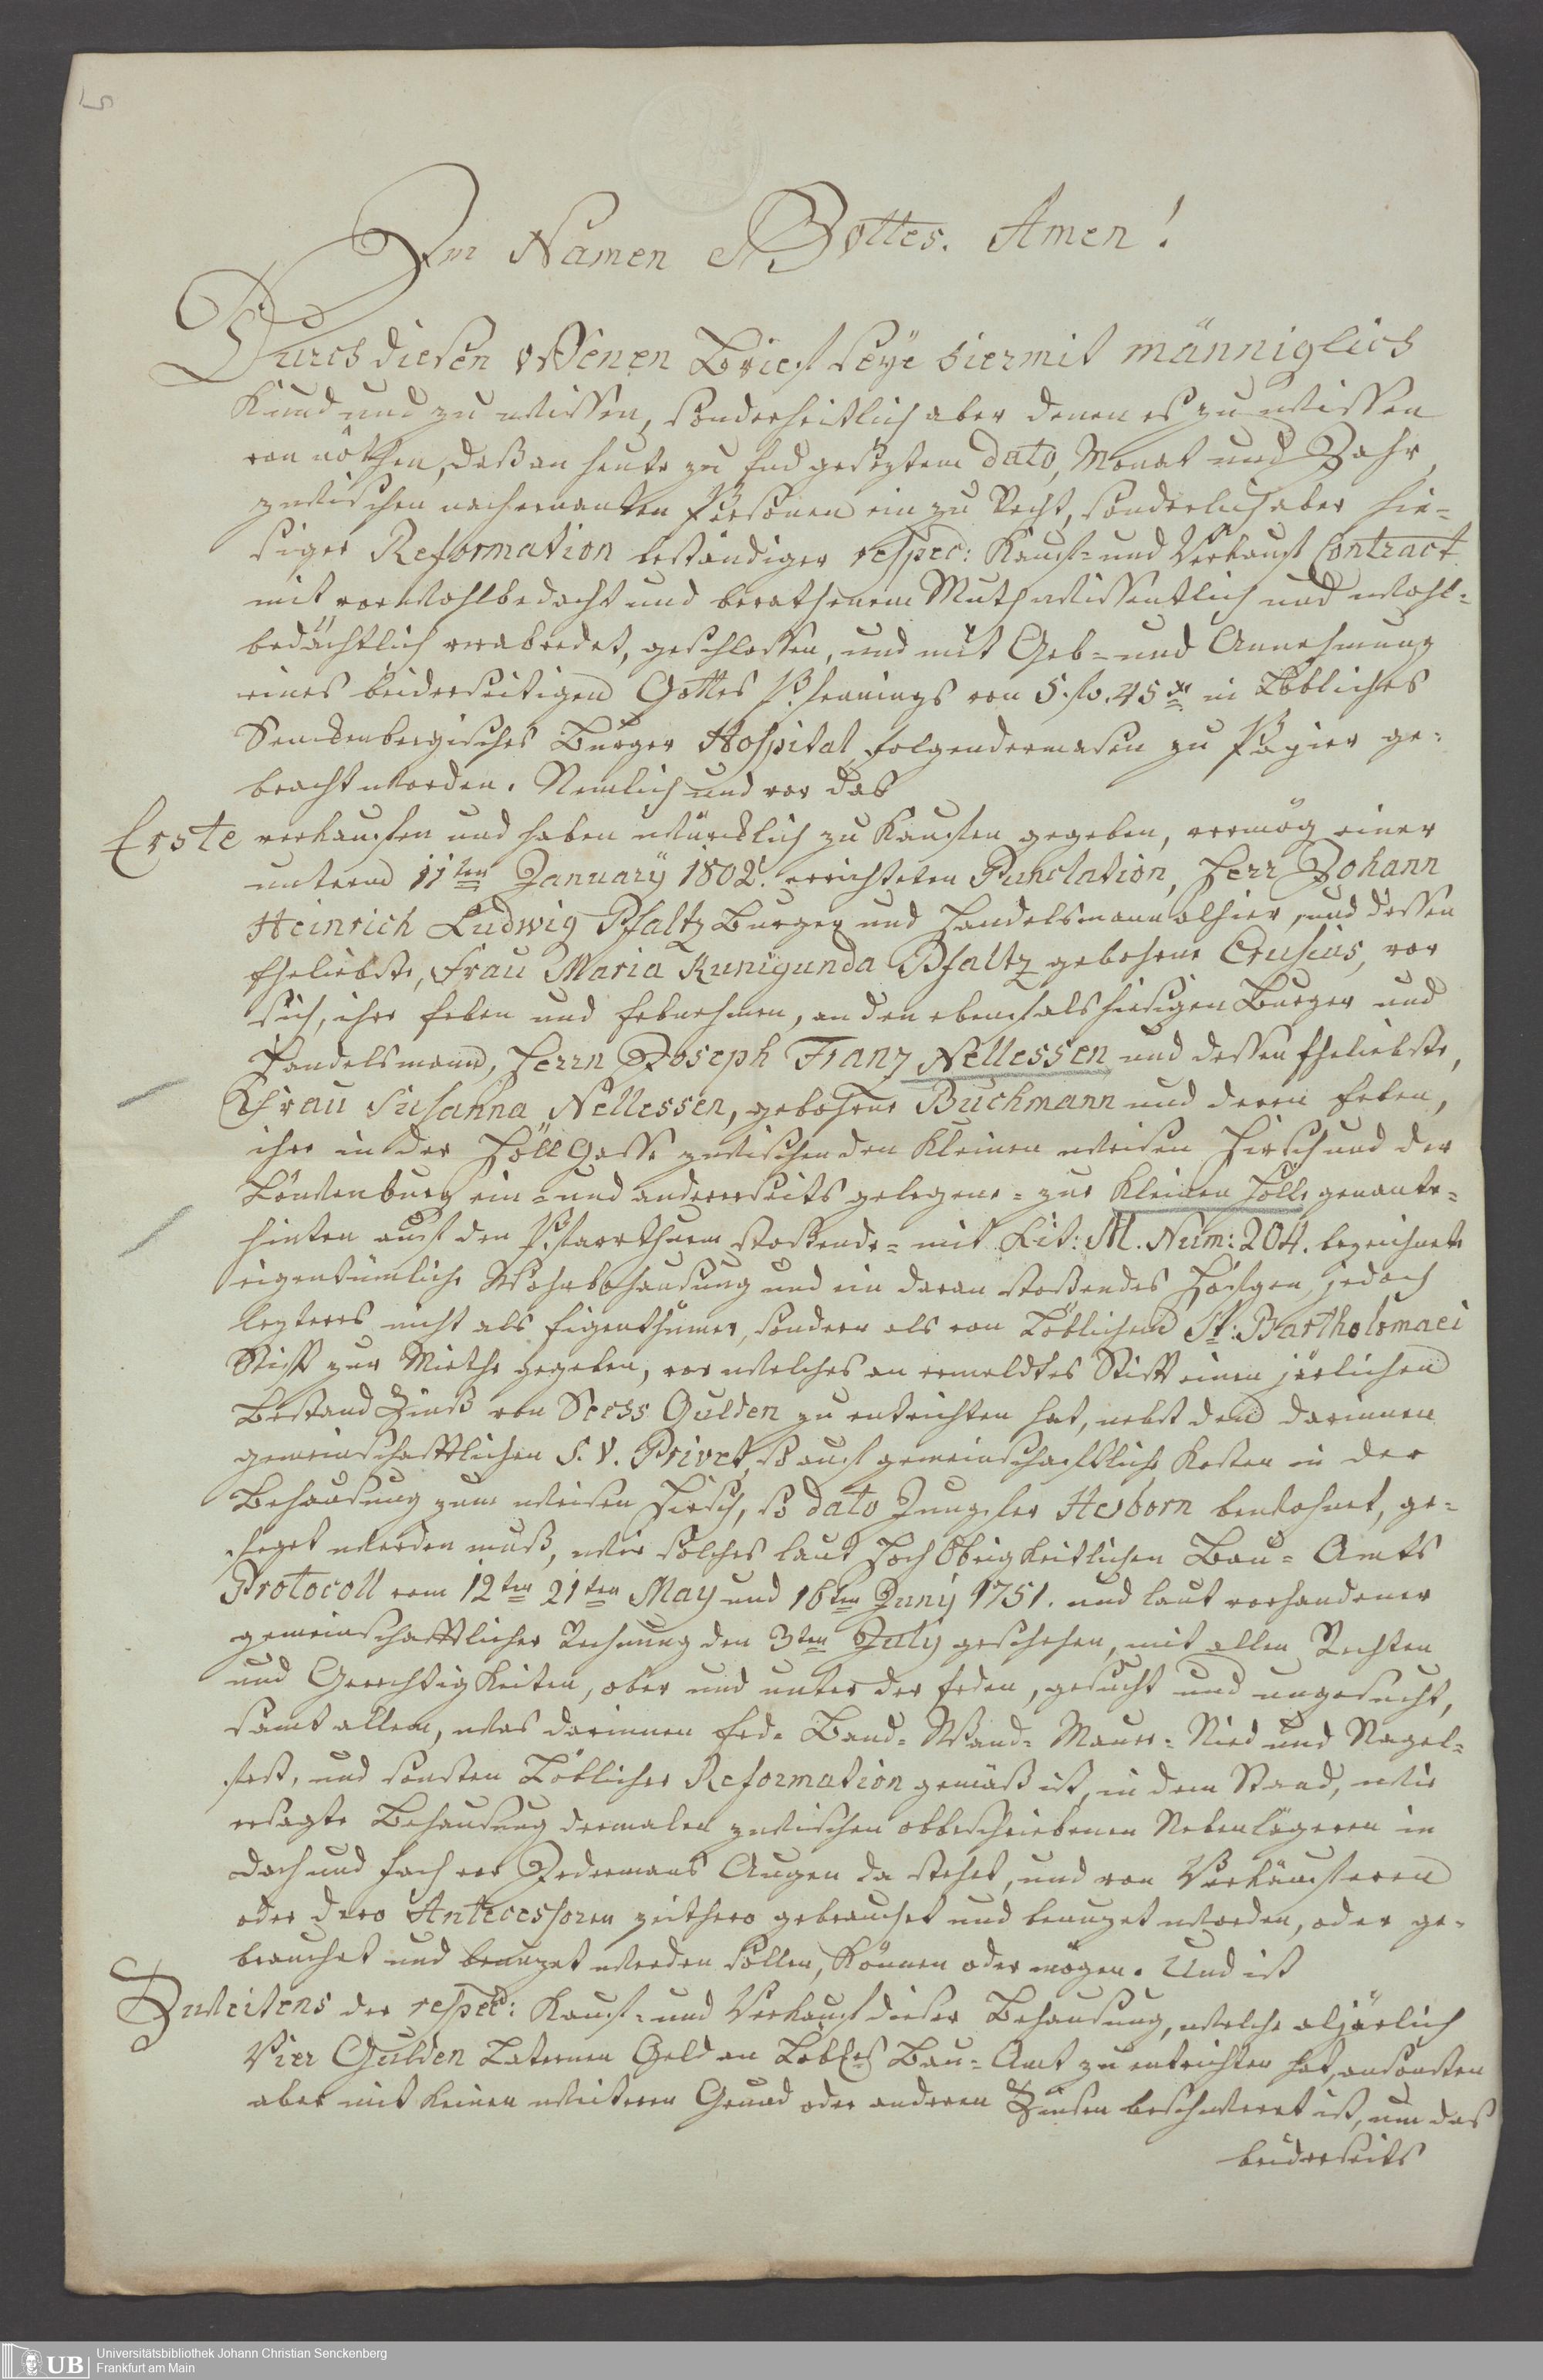 5
Im Namen Gottes. Amen!
Durch diesen offenen Brief seye hiermit männiglich
Kund und zu wissen, sonderheitlich aber denen es zu wissen
von nöthen, daß an heute zu End geseztem dato, Monat und Jahr,
zwischen nachernanten Persohnen ein zu Recht, sonderlich aber hie-
siger Reformation beständiger respec: Kauf- und Verkauf Contract
mit vorwohlbedacht und berathenem Muth wissentlich und wohl-
bedächtlich verabredet, geschlossen, und mit Geb- und Annehmung
eines beiderseitigen Gottes Pfennings von 5. fl. 45 xr in Löbliches
Senckenbergisches Burger Hospital folgendermasen zu Papier ge-
bracht worden. Nemlich und vor das
Erste verkauffen und haben würcklich zu Kauffen gegeben, vermög einer
unterm 11ten January 1802. errichteten Punctation, Herr Johann
Heinrich Ludwig Pfaltz Burger und Handelsmann alhier, und dessen
Eheliebste, Frau Maria Kunigunda Pfaltz gebohrne Crusius, vor
sich, ihre Erben und Erbnehmen, an den ebenfals hiesigen Burger und
Handelsmann, Herrn Joseph Franz Nellessen und dessen Eheliebste,
Frau Susanna Nellessen, gebohrne Buchmann und deren Erben,
ihre in der Höll Gasse zwischen den Kleinen weisen Hirsch und der
Löwenburg ein- und andererseits gelegene- zur Kleinen Hölle genante-
hinten auf den Pfarrthurn stossende- mit Lit: M. Num: 204. bezeichnete
eigentümliche Wohnbehausung und ein daran stoßendes Höfgen jedoch
lezteres nicht als Eigenthümer, sondern als von Löblichem St: Bartholomaei
Stifft zur Miethe gegeben, vor welches an ermeldtes Stifft einen järlichen
Bestand Zinß von Sechs Gulden zu entrichten hat, nebst dem darinnen
gemeinschafftlichen S. V. Privet, so auf gemeinschafftliche Kosten in der
Behausung zum weisen Hirsch, so dato Jungfer Hesborn bewohnet, ge-
feget werden muß, wie solches laut Hoch Obrigkeitlichen Bau- Amts
Protocoll vom 12ten 21ten May und 16ten Juny 1751. und laut vorhandener
gemeinschafftlicher Rechnung den 3ten July geschehen, mit allen Rechten
und Gerechtigkeiten, ober und unter der Erden, gesucht und ungesucht,
samt allem, was darinnen Erd- Band- Wand- Mauer- Nied und Nagel-
fest, und sonsten Löblicher Reformation gemäß ist, in dem Stand, wie
ersagte Behausung dermalen zwischen obbeschriebenen Nebenlägeren in
Dach und Fach vor Jedermans Augen da stehet, und von Verkäufferen
oder dero Antecessoren zeithero gebrauchet und benuzet worden, oder ge-
brauchet und benuzet werden sollen, Können oder mögen. Und ist
Zweitens der respec: Kauf- und Verkauf dieser Behausung, welche aljärlich
Vier Gulden Laternen Geld an Löbles Bau- Amt zu entrichten hat, ansonsten
aber mit Keinen weiteren Grund oder anderen Zinsen beschweret ist, um das
beiderseits
Universitätsbibliothek Johann Christian Senckenberg
Frankfurt am Main
UB